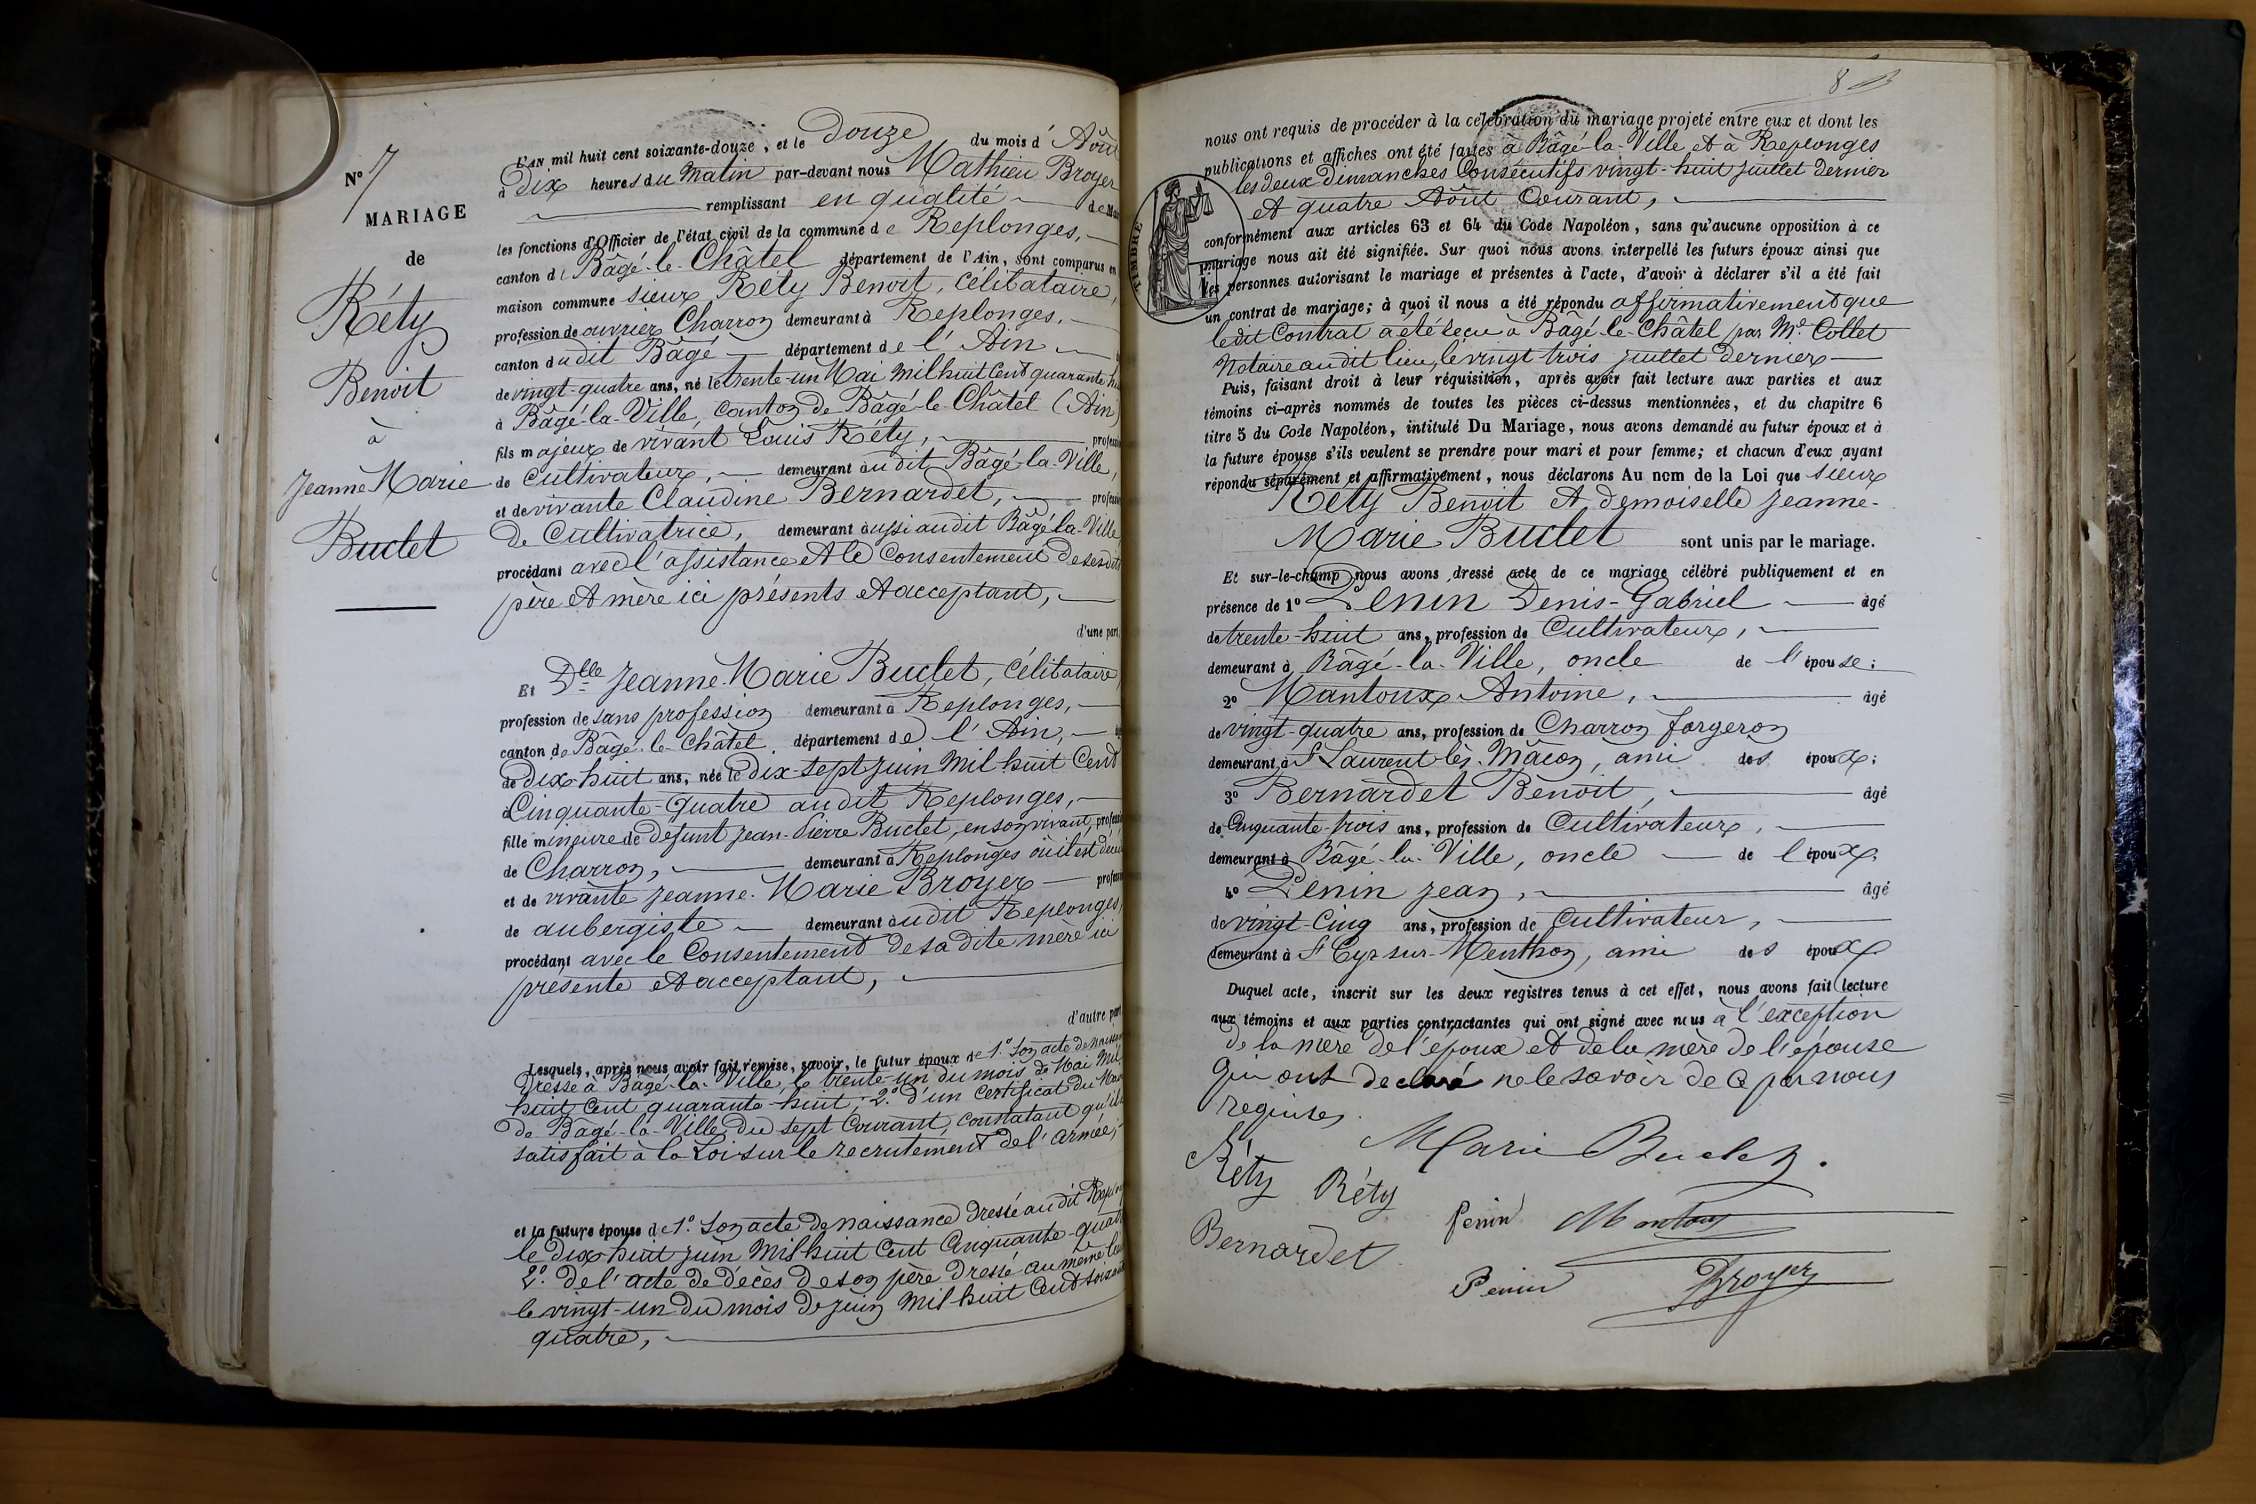 N° 7
MARIAGE
de
Réty
Benoit
à
Jeanne Marie
Buclet
L'AN mil huit cent soixante-douze, et le douze du mois d'Août
à dix heures du matin par-devant nous Mathieu Broyer
remplissant en qualité de Mai
les fonctions d'Officier de l'état civil de la commune de Replonges,
canton de Bâgé-le-Châtel département de l'Ain, sont comparus en
maison commune sieur Réty Benoit, célibataire,
profession de ouvrier Charron demeurant à Replonges,
canton dudit Bâgé département de l'Ain
de vingt-quatre ans, né le trente-un Mai mil huit cent quarante hu
à Bâgé-la-Ville, canton de Bâgé-le-Châtel (Ain)
fils majeur de vivant Louis Réty, profession
de Cultivateur, demeurant audit Bâgé-la-Ville,
et de vivante Claudine Bernardet, profession
de Cultivatrice, demeurant aussi audit Bâgé-la-Ville
procédant avec l'assistance et le consentement de sesdits
père et mère ici présents et acceptant,
d'une part,
Et Dlle Jeanne-Marie Buclet, célibataire,
profession de sans profession demeurant à Replonges,
canton de Bâgé-le-Châtel, département de l'Ain,
de dix-huit ans, née le dix-sept juin mil huit cent
Cinquante-Quatre audit Replonges,
fille mineure de défunt Jean-Pierre Buclet, en son vivant, profession
de Charron, demeurant à Replonges où il est décédé
et de vivante Jeanne-Marie Broyer profession
de aubergiste demeurant audit Replonges,
procédant avec le consentement de sa dite mère ici
présente et acceptant,
d'autre part.
Lesquels, après nous avoir fait remise, savoir, le futur époux de 1° son acte de naissance
dressé à Bâgé-la-Ville, le trente-un du mois de Mai mil
huit cent quarante-huit; 2° d'un certificat du Maire
de Bâgé-la-Ville, du sept courant, constatant qu'il a
satisfait à la Loi sur le recrutement de l'armée;
et la future épouse de 1° son acte de naissance dressé audit Replonges
le dix-huit juin mil huit cent cinquante-quatre
2° de l'acte de décès de son père dressé au même lieu
le vingt-un du mois de juin mil huit cent soixante
quatre,
8
nous ont requis de procéder à la célébration du mariage projeté entre eux et dont les
publications et affiches ont été faites à Bâgé-la-Ville et à Replonges
les deux dimanches consécutifs vingt-huit juillet dernier
et quatre Août courant,
TIMBRE
conformément aux articles 63 et 64 du Code Napoléon, sans qu'aucune opposition à ce
mariage nous ait été signifiée. Sur quoi nous avons interpellé les futurs époux ainsi que
les personnes autorisant le mariage et présentes à l'acte, d'avoir à déclarer s'il a été fait
un contrat de mariage; à quoi il nous a été répondu affirmativement que
ledit contrat a été reçu à Bâgé-le-Châtel par Me Collet
Notaire audit lieu, le vingt trois juillet dernier
Puis, faisant droit à leur réquisition, après avoir fait lecture aux parties et aux
témoins ci-après nommés de toutes les pièces ci-dessus mentionnées, et du chapitre 6
titre 5 du Code Napoléon, intitulé Du Mariage, nous avons demandé au futur époux et à
la future épouse s'ils veulent se prendre pour mari et pour femme; et chacun d'eux ayant
répondu séparément et affirmativement, nous déclarons Au nom de la Loi que sieur
Réty Benoit et demoiselle Jeanne-
Marie Buclet sont unis par le mariage.
Et sur-le-champ nous avons dressé acte de ce mariage célébré publiquement et en
présence de 1° Penin Denis-Gabriel âgé
de trente-huit ans, profession de Cultivateur,
demeurant à Bâgé-la-Ville, oncle de l'épouse;
2° Mantoux Antoine, âgé
de vingt-quatre ans, profession de Charron forgeron
demeurant à St Laurent-lès-Mâcon, ami des époux;
3° Bernardet Benoit, âgé
de Cinquante-trois ans, profession de Cultivateur,
demeurant à Bâgé-la-Ville, oncle de l'époux;
4° Penin Jean, âgé
de vingt-cinq ans, profession de Cultivateur,
demeurant à St Cyr-sur-Menthon, ami des époux
Duquel acte, inscrit sur les deux registres tenus à cet effet, nous avons fait lecture
aux témoins et aux parties contractantes qui ont signé avec nous à l'exception
de la mère de l'époux et de la mère de l'épouse
qui ont déclaré ne le savoir de ce par nous
requises.
Marie Buclet.
Réty Réty
Penin Mantoux
Bernardet
Penin Broyer